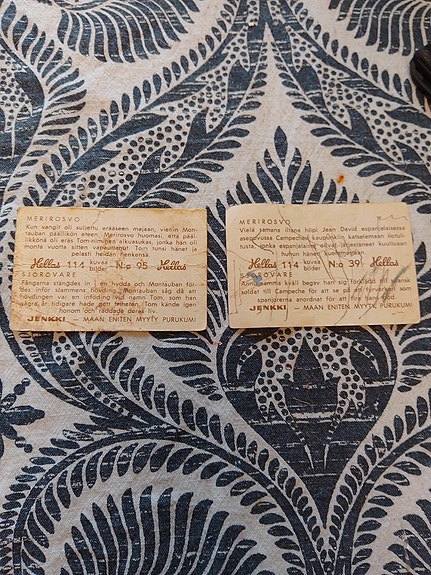 MERIROSVO
Kun vangit oli suljettu erääseen majaan, vietiin Mon-
tauban päällikön eteen. Merirosvo huomasi, että pääl-
likkönä oli eräs Tom-niminen aikuasukas, jonka hän oli
monta vuotta sitten vapauttanut. Tom tunsi hänet ja
pelasti heidän henkensä.
Hellas 114 kuvaa bilder N:o 95 Hellas
SJÖRÖVARE
Fångarna stängdes in i en hydda och Montauban för-
des inför stammens hövding. Montauban såg då att
hövdingen var en inföding vid namn Tom, som han
några år tidigare hade gett friheten. Tom kände igen
honom och räddade deras liv.
JENKKI — MAAN ENITEN MYYTY PURUKUMI
MERIROSVO
Vielä samana iltana hiipi Jean David espanjalaisessa
asepuvussa Campechen kaupunkiin katselemaan ilotuli-
tusta, jonka espanjalaiset olivat järjestäneet kuultuaan
huhun hänen kuolemastaan.
Hellas 114 kuvaa bilder N:o 39 Hellas
SJÖRÖVARE
samma kväll begav han sig förklädd till spansk
soldat till Campeche för att se på ett fyrverkeri, som
spanjorerna anordnat för att fira hans död.
JENKKI — MAAN ENITEN MYYTY PURUKUMI